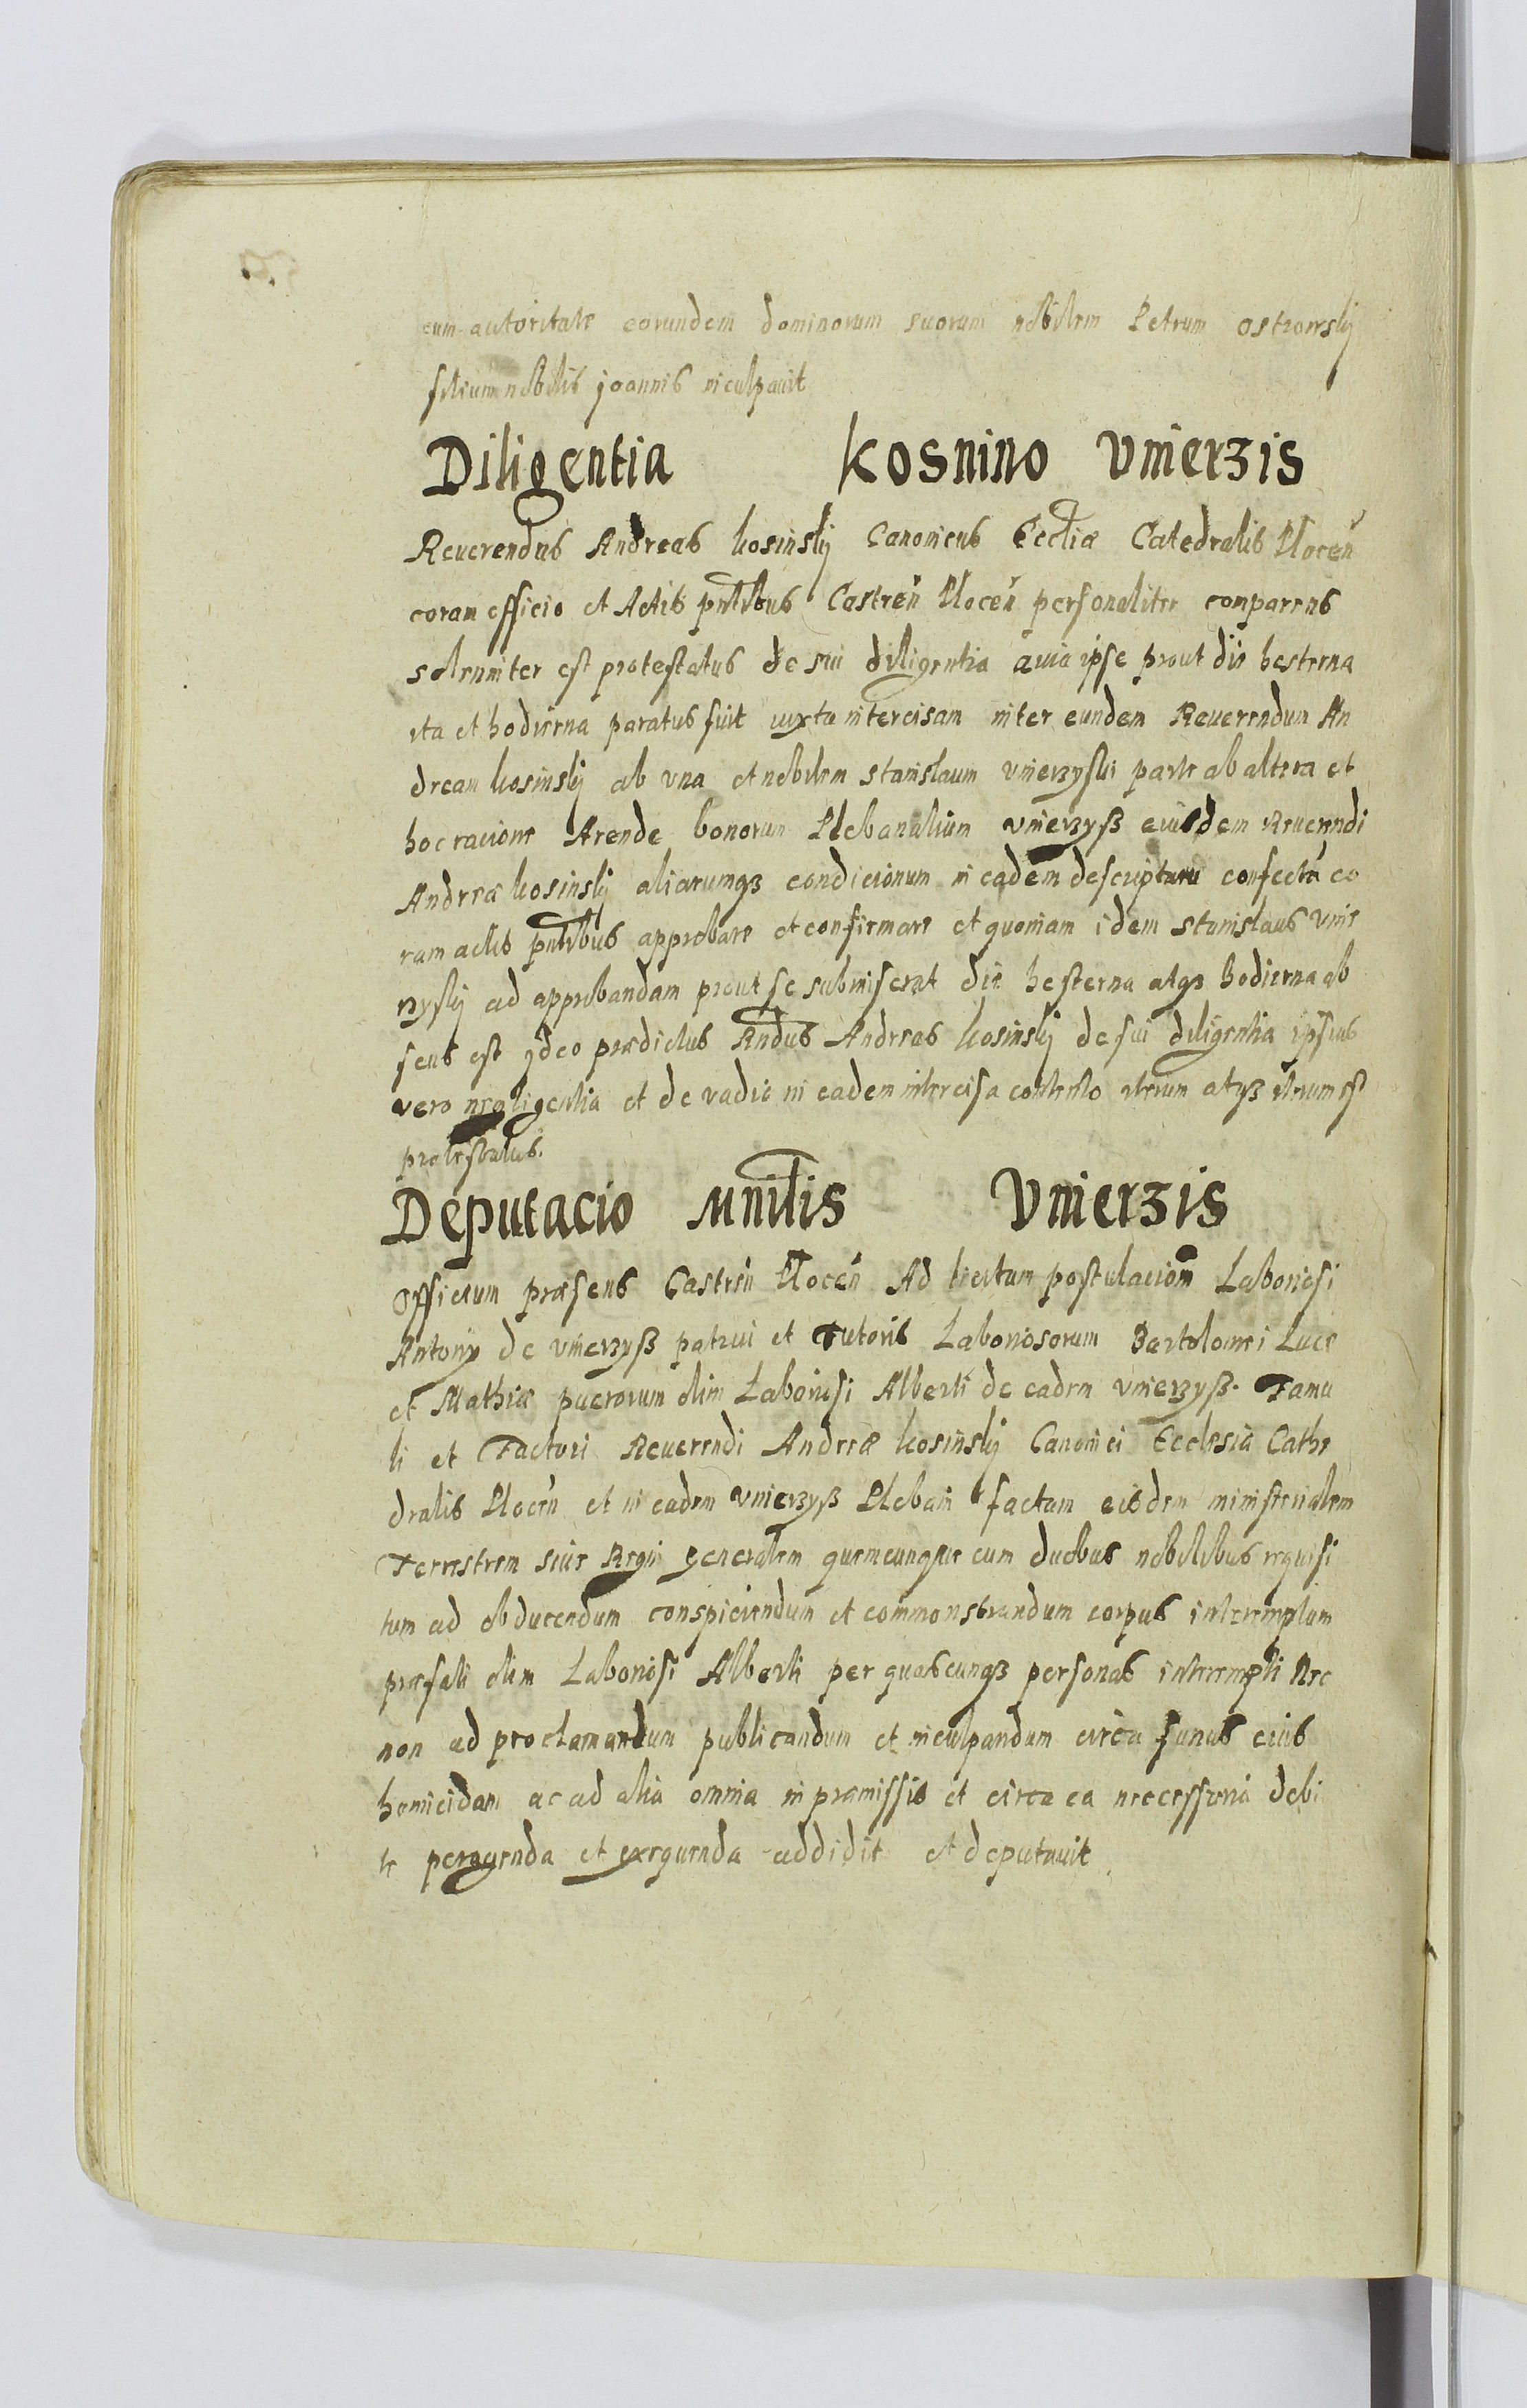 cum autoritate eorundem dominorum suorum nobilem Petrum ostrowskij
filium nobilis joannis inculpavit
Diligentia Kosnino Vnierzis
Reuerendus Andreas kosinskij Canonicus Eccliæ Catedralis Plocen̄
coram officio et Actis pn̄tibus Castren̄ Plocen̄ personaliter comparens
solenniter est protestatus de sui diligentia quia ipse prout die hesterna
ita et hodierna paratus fuit iuxta intercisam inter eundem Reuerendum An
dream kosinskij ab vna et nobilem stanislaum vnierzyski parte ab altera et
hoc racione Arende bonorum Plebanalium vnierzyß eiusdem Reuerendi
Andreæ kosinskij aliarumqȝ condicionum in eadem descriptarum confectā co
ram actis pn̄tibus approbare et confirmare et quoniam idem stanislaus vnie
rzyskij ad approbandam prout se submiserat die hesterna atqȝ hodierna ab
sens est ideo prædictus Rn̄dus Andreas kosinskij de sui diligentia ipsius
vero negligentia et de vadio in eadem intercisa contento iterum atqȝ iterum est
protestatus.
Deputacio Mnilis Vnierzis
Officium præsens Castren̄ Plocen̄ Ad postulaciom Laboriosi
Antonij de vnierzyß patrui et Tutoris Laboriosorum Bartolomei Luce
et Mathiæ puerorum olim Laboriosi Alberti de eadem vnierzyß. Famu
li et Factori Reuerendi Andreæ kosinskij Canonici Ecclesiæ Cathe
dralis Plocen̄ et in eadem vnierzyß Plebani factam eisdem ministerialem
Terrestrem siue Regni generalem quemcunque cum duobus nobilibus requisi
tum ad obducendum conspiciendum et commonstrandum corpus interemptum
præfati olim Laboriosi Alberti per quascunqȝ personas interempti Nec
non ad proclamandum publicandum et inculpandum circa funus eius
homicidam ac ad alia omnia in præmissis et circa ea necessaria debi
te peragenda et exequenda addidit et deputauit